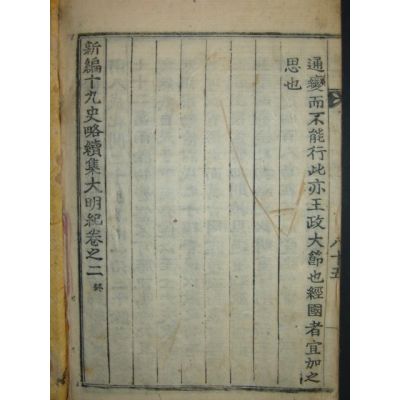 通變而不能行此亦王政大節也經國者宜加之
思也
新編十九史略續集大明紀卷之二 終
八十五